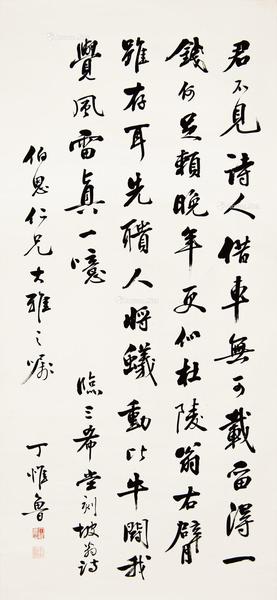 君不見詩人借車無可載留得一
錢何足賴晚年更似杜陵翁右臂
雖存耳先聵人將蟻動作牛鬭我
覺風雷真一噫
臨三希堂刻坡翁詩
伯思仁兄大雅之囑
丁惟魯